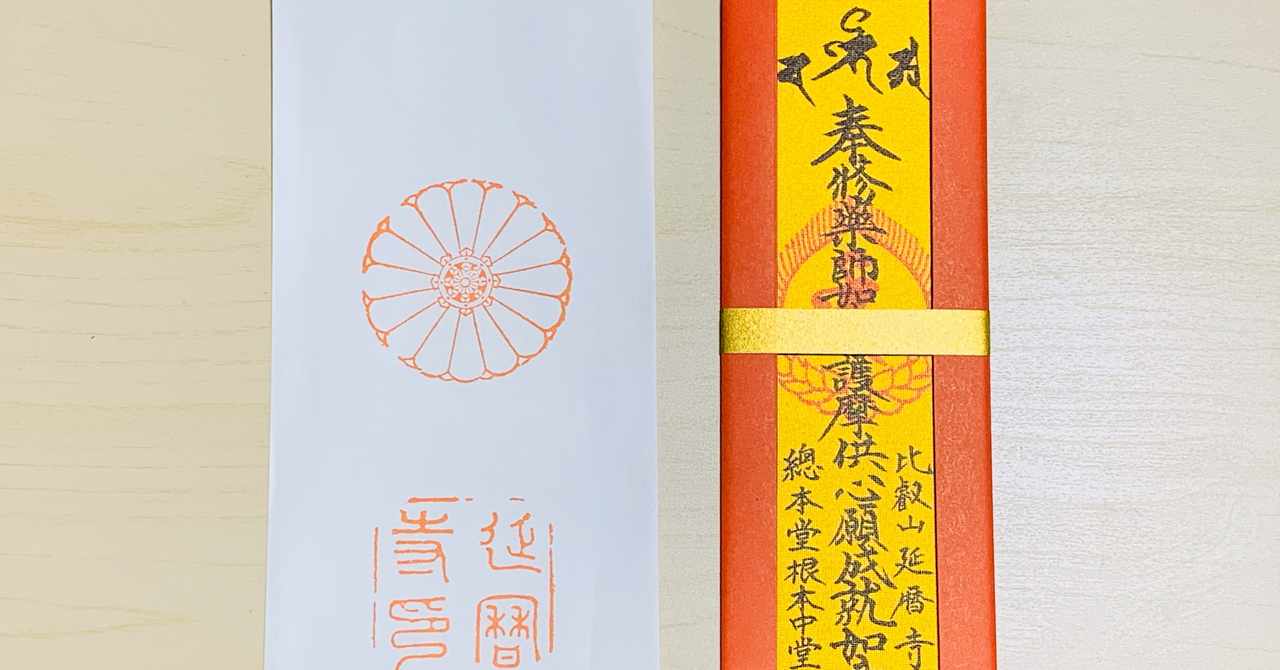 延暦
寺印
奉修藥師如護摩供心願成就如
比叡山延暦寺
總本堂根本中堂